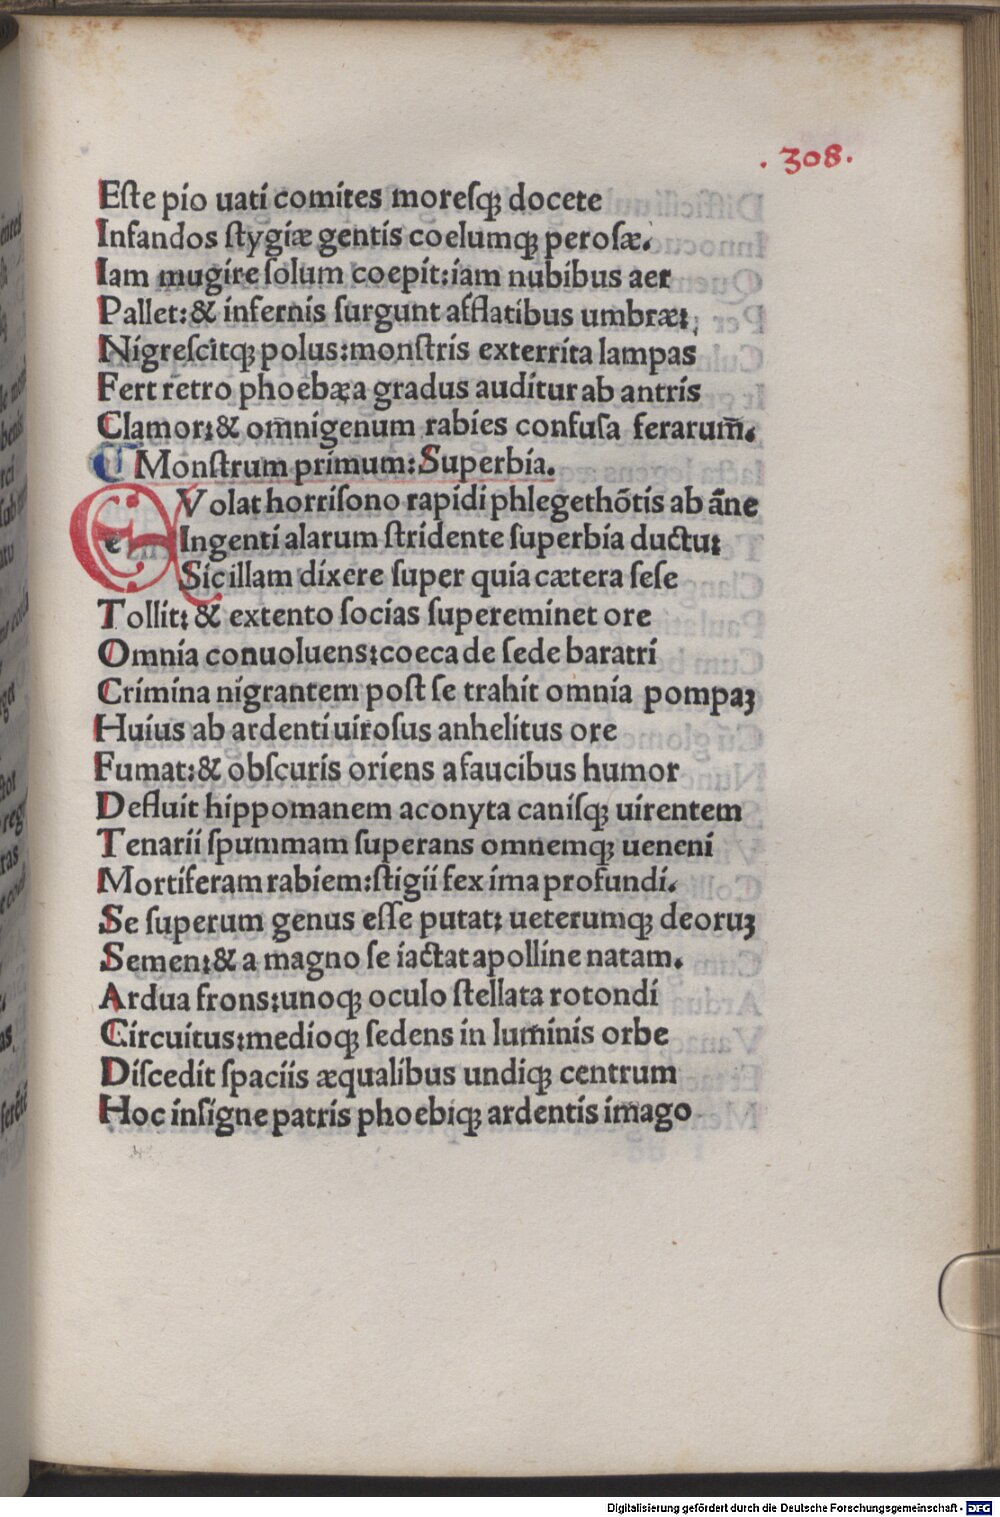 . 308.
Este pio uati comites moresqꝫ docete
Infandos stygiæ gentis coelumqꝫ perosæ.
Iam mugire solum coepit:iam nubibus aer
Pallet:& infernis surgunt afflatibus umbræ:
Nigrescitqꝫ polus:monstris exterrita lampas
Fert retro phoebæa gradus auditur ab antris
Clamor:& om̅nigenum rabies confusa ferarum̅.
Monstrum primum:Superbia.
EVolat horrisono rapidi phlegethōtis ab āne
Ingenti alarum stridente superbia ductu:
Sic illam dixere super quia cætera sese
Tollit:& extento socias supereminet ore
Omnia conuoluens:coeca de sede baratri
Crimina nigrantem post se trahit omnia pompaꝫ
Huius ab ardenti uirosus anhelitus ore
Fumat:& obscuris oriens a faucibus humor
Defluit hippomanem aconyta canisqꝫ uirentem
Tenarii spummam superans omnemqꝫ ueneni
Mortiferam rabiem:stigii fex ima profundi.
Se superum genus esse putat: ueterumqꝫ deoruꝫ
Semen:& a magno se iactat apolline natam.
Ardua frons:unoqꝫ oculo stellata rotondi
Circuitus:medioqꝫ sedens in luminis orbe
Discedit spaciis æqualibus undiqꝫ centrum
Hoc insigne patris phoebiqꝫ ardentis imago
Digitalisierung gefördert durch die Deutsche Forschungsgemeinschaft - DFG